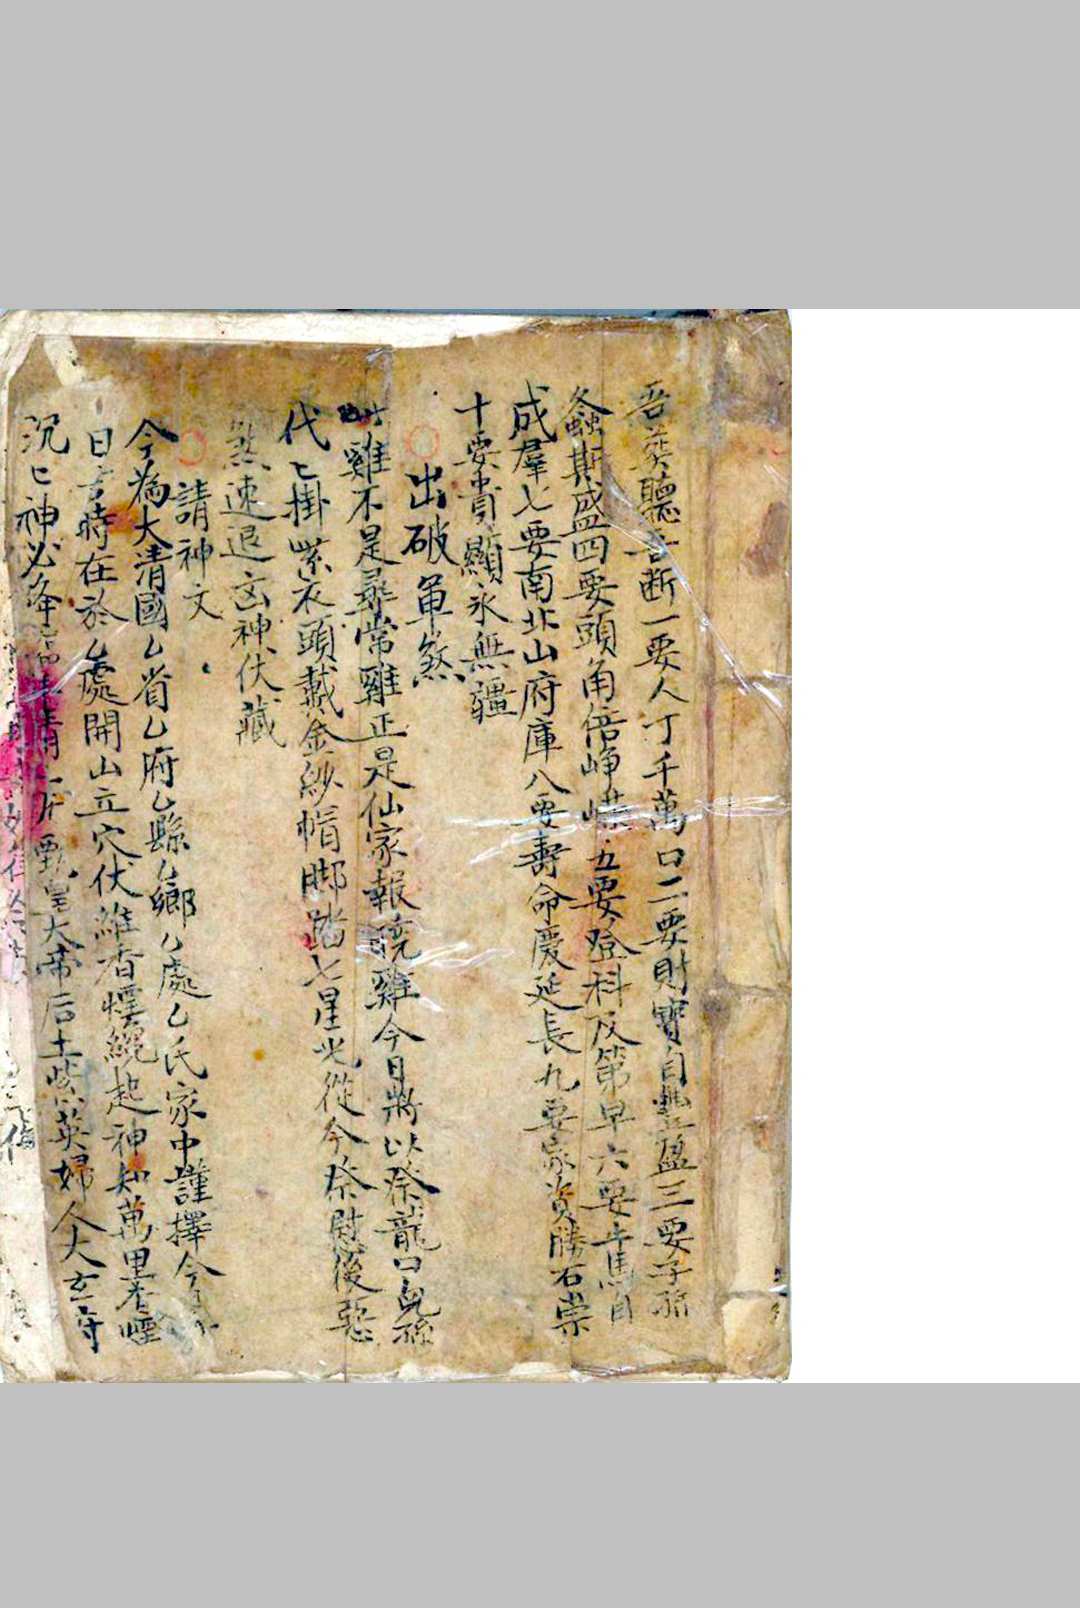 吾葬聽吾断一要人丁千萬口二要財寶自豐盈三要子孫
螽斯盛四要頭角倍崢嶸五要登科及第早六要牛馬自
成羣七要南北山府庫八要壽命慶延長九要家資勝石崇
十要貴顯永無疆
出破軍煞
此雞不是尋常雞正是仙家報曉雞今日將以祭龍口兒孫
代匕掛紫衣頭戴金紗帽脚踏七星光從今祭慰後惡
煞速退凶神伏藏
請神文
今為大清國厶省厶府厶縣厶鄉厶處厶氏家中謹擇今
日吉時在於厶處開山立穴伏維香煙纔起神知萬里香煙
沉匕神必降 一片 皇大帝后土紫英婦人大玄